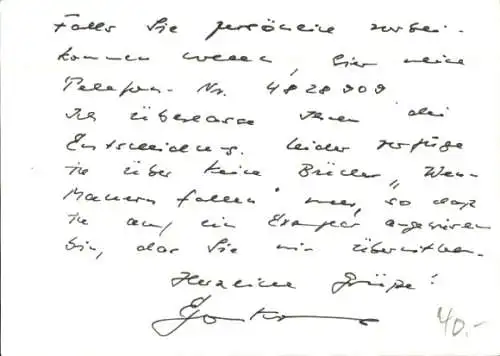 Falls Sie persönlich vorbei-
kommen wollen, hier meine
Telefon-Nr. 4828909
Ich überlasse Ihnen die
Entscheidung. Leider verfüge
ich über keine Bücher „Wenn
Mauern fallen" mehr, so daß
ich auf ein Exemplar angewiesen
bin, das Sie mir übermitteln.
Herzliche Grüße!
40.-